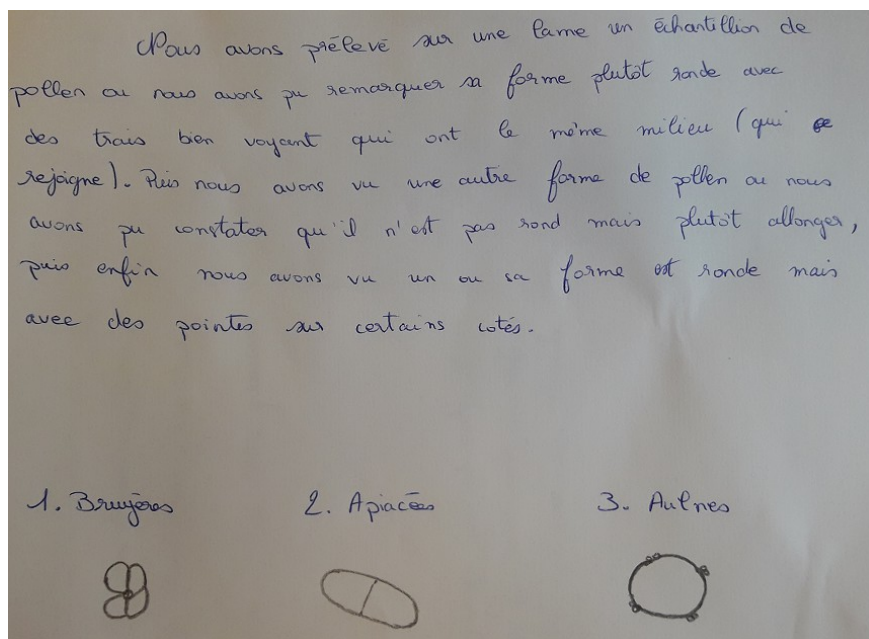 Nous avons prélevé sur une lame un échantillion de
pollen ou nous avons pu remarquer sa forme plutôt ronde avec
des trais bien voyant qui ont le même milieu (qui se
rejoigne). Puis nous avons vu une autre forme de pollen ou nous
avons pu constater qu'il n'est pas rond mais plutôt allonger,
puis enfin nous avons vu un ou sa forme est ronde mais
avec des pointes sur certains cotés.
1. Bruyères 2. Apiacées 3. Aulnes